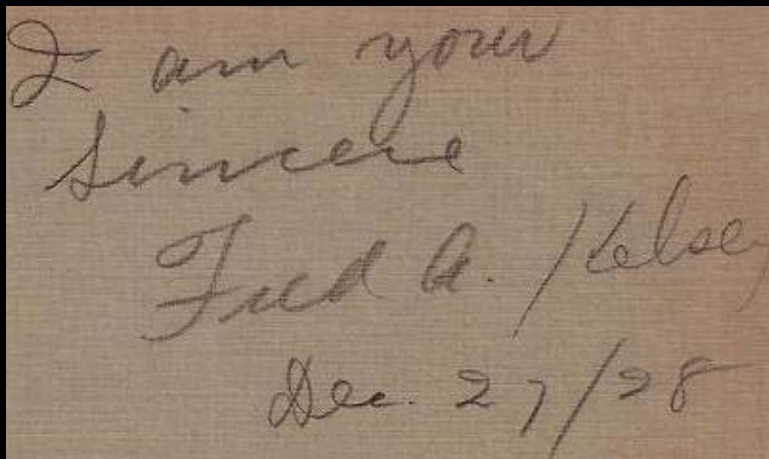 I am your
sincere
Fred A. Kelsey
Dec. 27/28